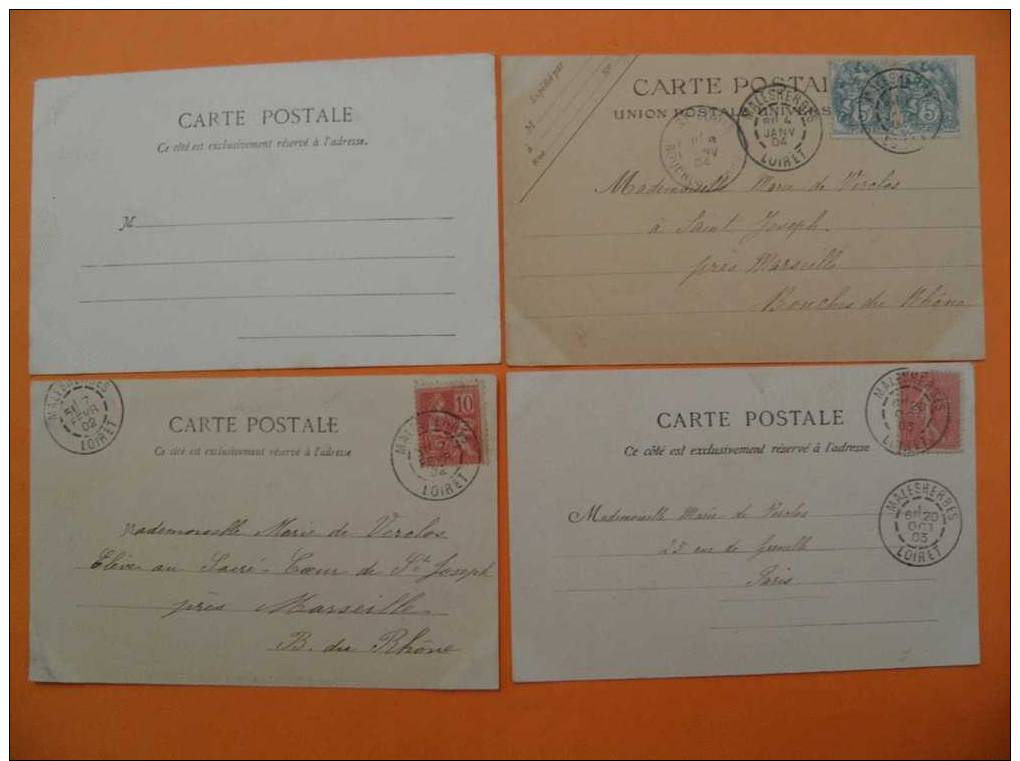 CARTE POSTALE
Ce côté est exclusivement réservé à l'adresse.
M
Expédié par
M
à
Rue
N°
CARTE POSTAL
UNION POSTALE UNIVERS
MALESHERBES
4
JANV
04
LOIRET
5
5
Mademoiselle Marie de Verclos
à Saint Joseph.
près Marseille
Bouches du Rhône
MALESHERBES
7
FEVR
02
LOIRET
CARTE POSTALE
Ce côté est exclusivement réservé à l'adresse
10
LOIRET
Mademoiselle Marie de Verclos
Elève au Sacré-Cœur de St Joseph
près Marseille
B. du Rhône
CARTE POSTALE
Ce côté est exclusivement réservé à l'adresse
MALESHERBES
03
LOIRET
MALESHERBES
20
OCT
03
LOIRET
Mademoiselle Marie de Verclos
25 rue de Grenelle
Paris